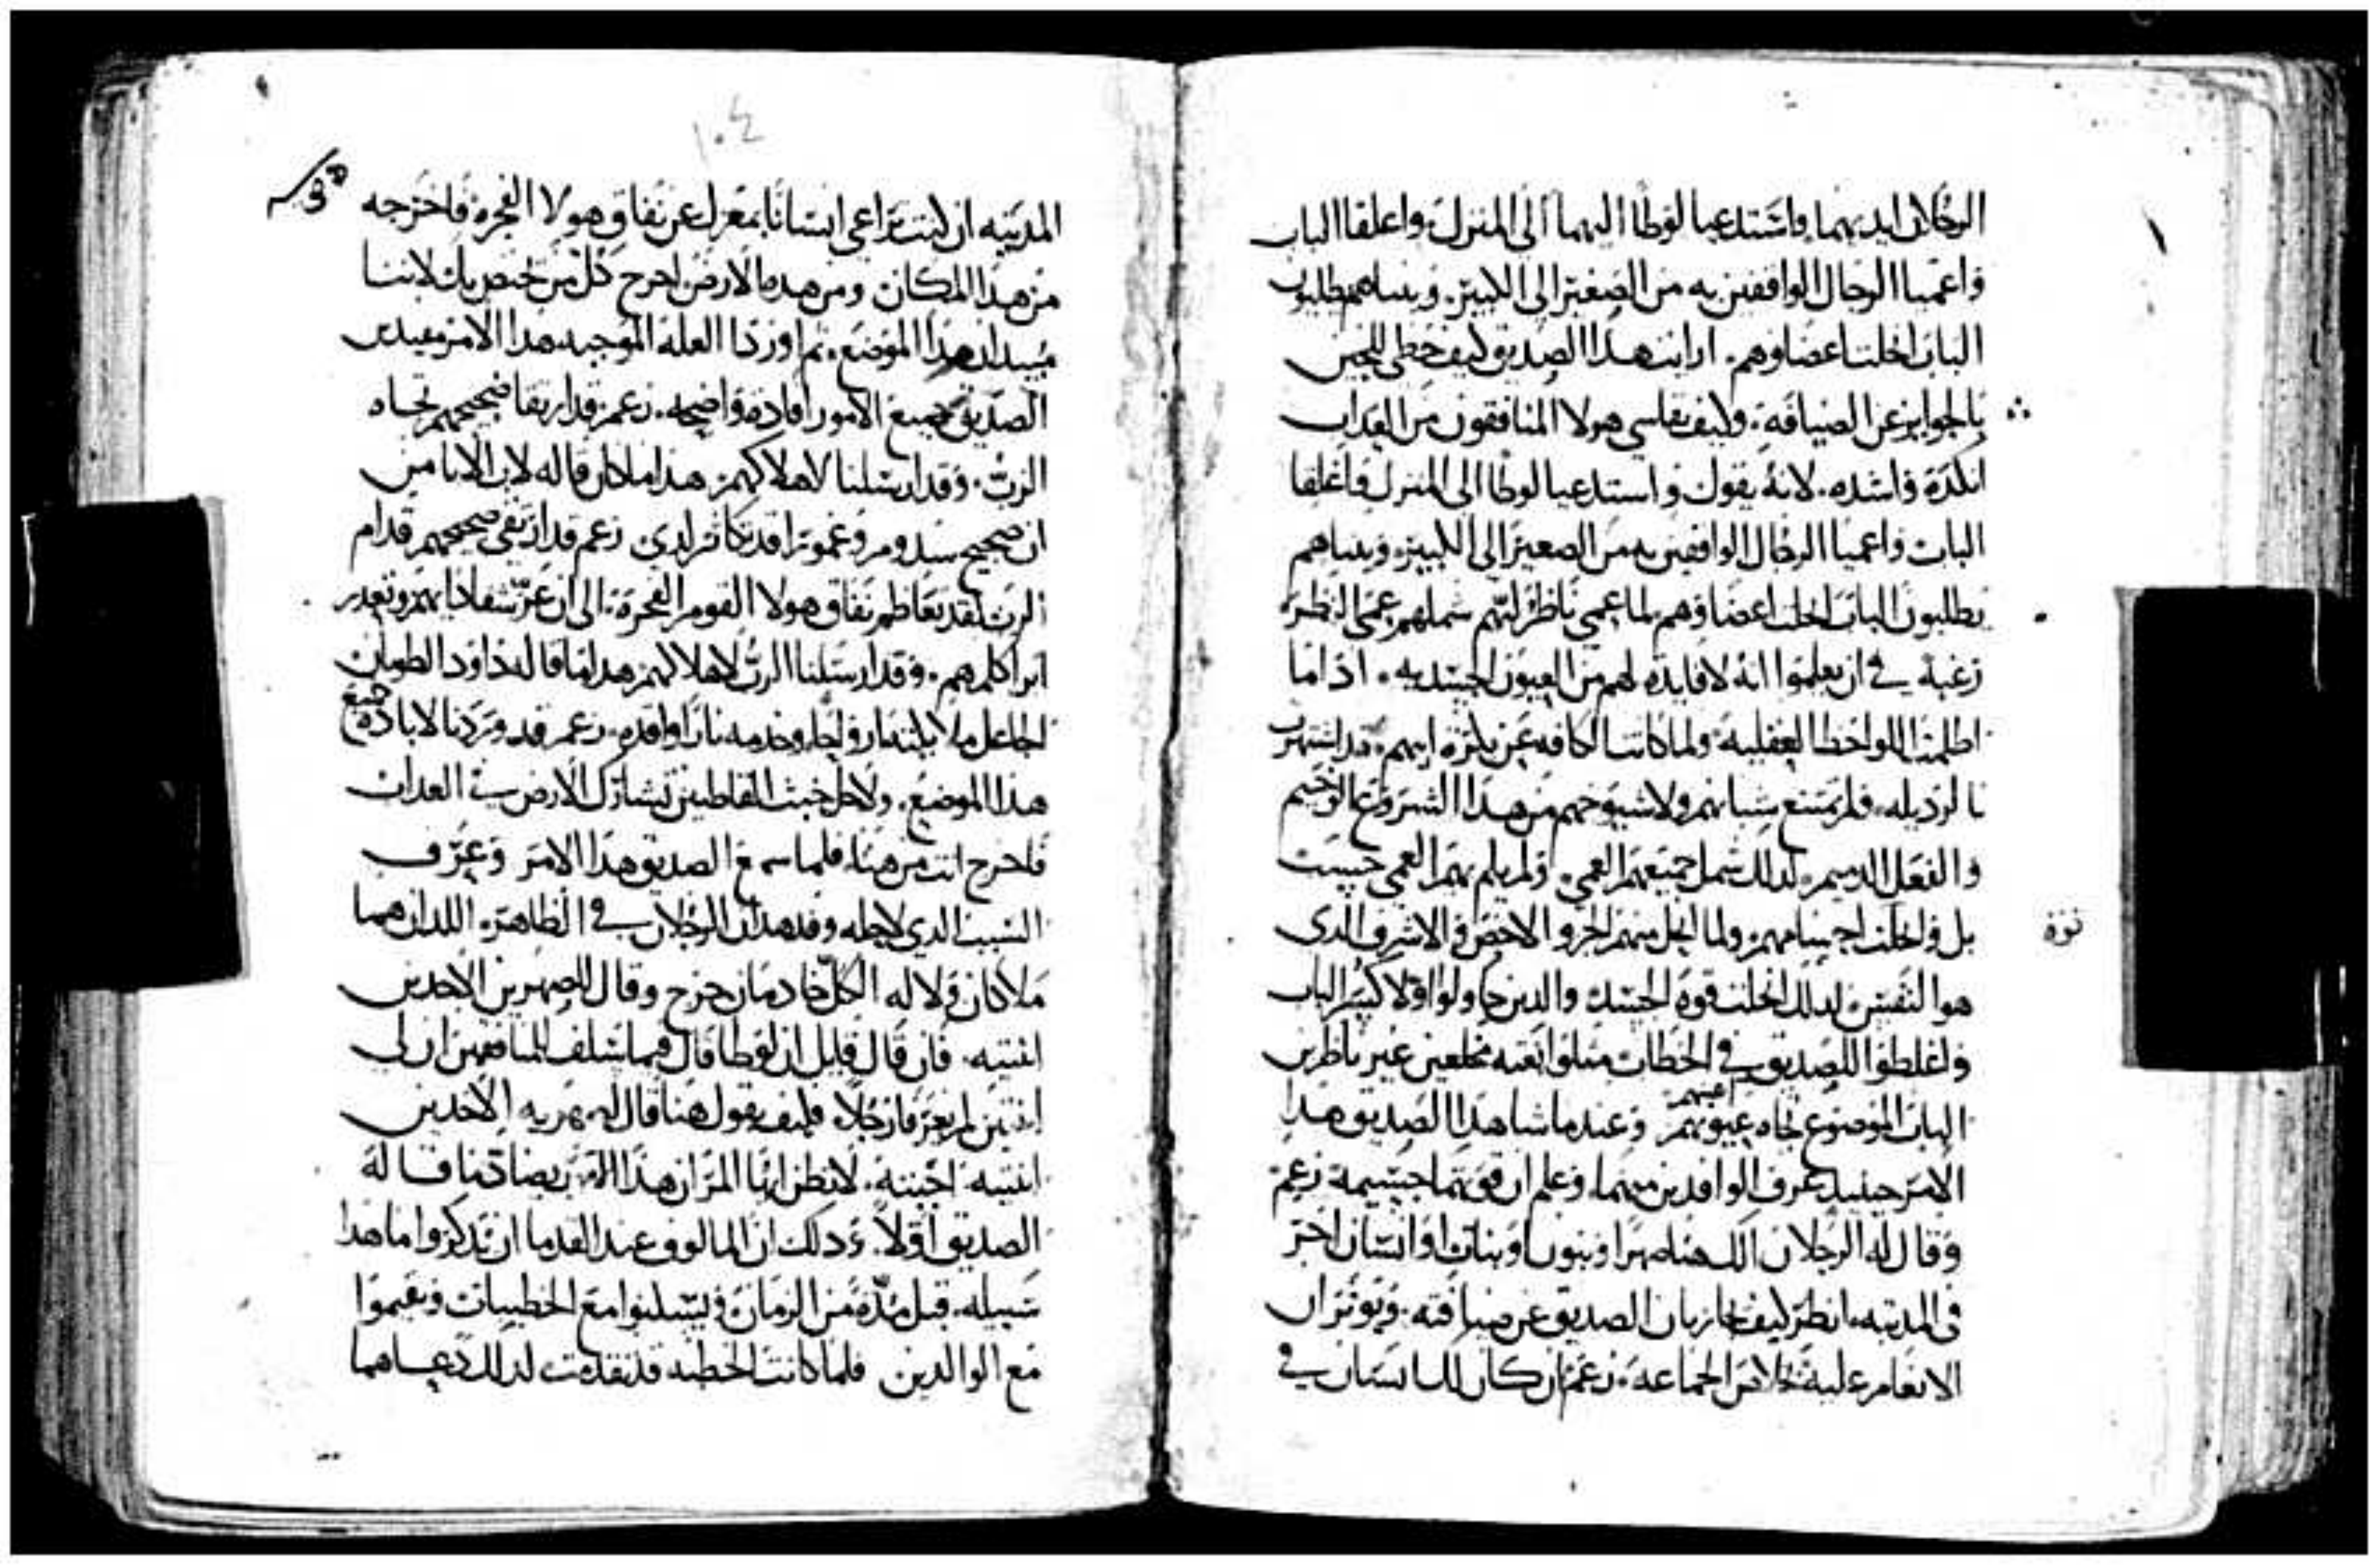 الرجلان ايديهما واستدعيا لوطا اليهما الى المنزل واغلقا الباب
واعميا الرجال الواقفين به من الصغير الى الكبير. وبيناهم يطلبون
الباب انحلت اعضاوهم. ارايت هدا الصديق كيف حظى للحين
بالجوايز عن الضيافة. وكيف يقاسى هولا المنافقون من العداب
انكده واشده. لانه يقول واستدعيا لوطا الى المنزل واغلقا
الباب واعميا الرجال الواقفين به من الصغير الى الكبير. وبيناهم
يطلبون الباب انحلت اعضاوهم لما عمى ناظر لبهم شملهم عمى النظر
رغبة في ان يعلموا انه لا فايدة لهم من العيون الجسديه. ادا ما
اظلمت اللواحظ العقليه ولما كانت الكافه عن بكرة ابيهم قد اشتهرت
بالرديله. فلم يمتنع شبانهم ولا شيوخهم من هدا الشر والوخيم
والفعل الدميم. لدلك شمل جميعهم العمى. ولم يلم بهم العمى حسب
بل وانحلت اجسامهم. ولما انحل منهم الجزو الاخص والاشرف الدى
نزه
هو النفس لدلك انحلت قوة الجسد والدين حاولوا اولا كسر الباب
واغلطوا للصديق في الخطاب مثلوا بغته مخلعين غير ناظرين
الباب الموضوع تجاه عيونهم اعينهم وعندما شاهد الصديق هدا
الامر حينيد عرف الوافدين من هما. وعلم ان قوتهما جسيمة زعم
وقال له الرجلان الك هنا صهرا وبنون او بنات او انسان اخر
في المدينه. انظر كيف يجازيان الصديق عن ضيافته. ويوثران
الانعام عليه بخلاص الجماعه. زعم ان كان لك انسان في
١٠٤
المدينه ان كنت تراعى انسانا بمعزل عن نفاق هولا الفجرة فاخرجه
من هدا المكان ومن هده الارض اخرج كل من يختص بك لاننا
مبيدان هدا الموضع. ثم اوردا العله الموجبه هدا الامر مفيدين
الصديق جميع الامور افادة واضحه. زعم قد ارتقا ضجيجهم تجاه
الرب. وقد ارسلنا لاهلاكهم هدا ما كان قاله لاب الابا من
ان ضجيج سدوم وغمورا قد تكاثر لدى زعم قد ارتقى ضجيجهم قدام
الرب لقد تعاظم نفاق هولا القوم الفجرة. الى ان عز شفا دايهم وتعدر
ابرا كلمهم. وقد ارسلنا الرب لاهلاكهم هدا ما قاله داود الطوبان
الجاعل ملايكته ارواحا وخدمه نارا واقده. زعم قد وردنا لابادة جميع
هدا الموضع. ولاجل خبث القاطنين تشارك الارض في العداب
فاخرج انت من هنا. فلما سمع الصديق هدا الامر وعرف
السبب الدي لاجله وفد هدان الرجلان في الظاهر. اللدان هما
ملاكان ولاله الكل خادمان خرج وقال للصهرين الاخدين
ابنتيه. فان قال قايل ان لوطا قال فيما سلف للمنافقين ان لى
ابنتين لم يعرفا رجلا فكيف يقول هنا قال لصهريه الاخدين
ابنتيه. اجبته. لا تظن ايها المر ان هدا الامر يضادد ما قاله
الصديق اولا. ودلك ان المالوف عند القدما ان يدكروا ما هدا
سبيله. قبل مدة من الزمان ويسكنوا مع الخطيبات ويقيموا
مع الوالدين فلما كانت الخطبه قد تقدمت لدلك دعاهما